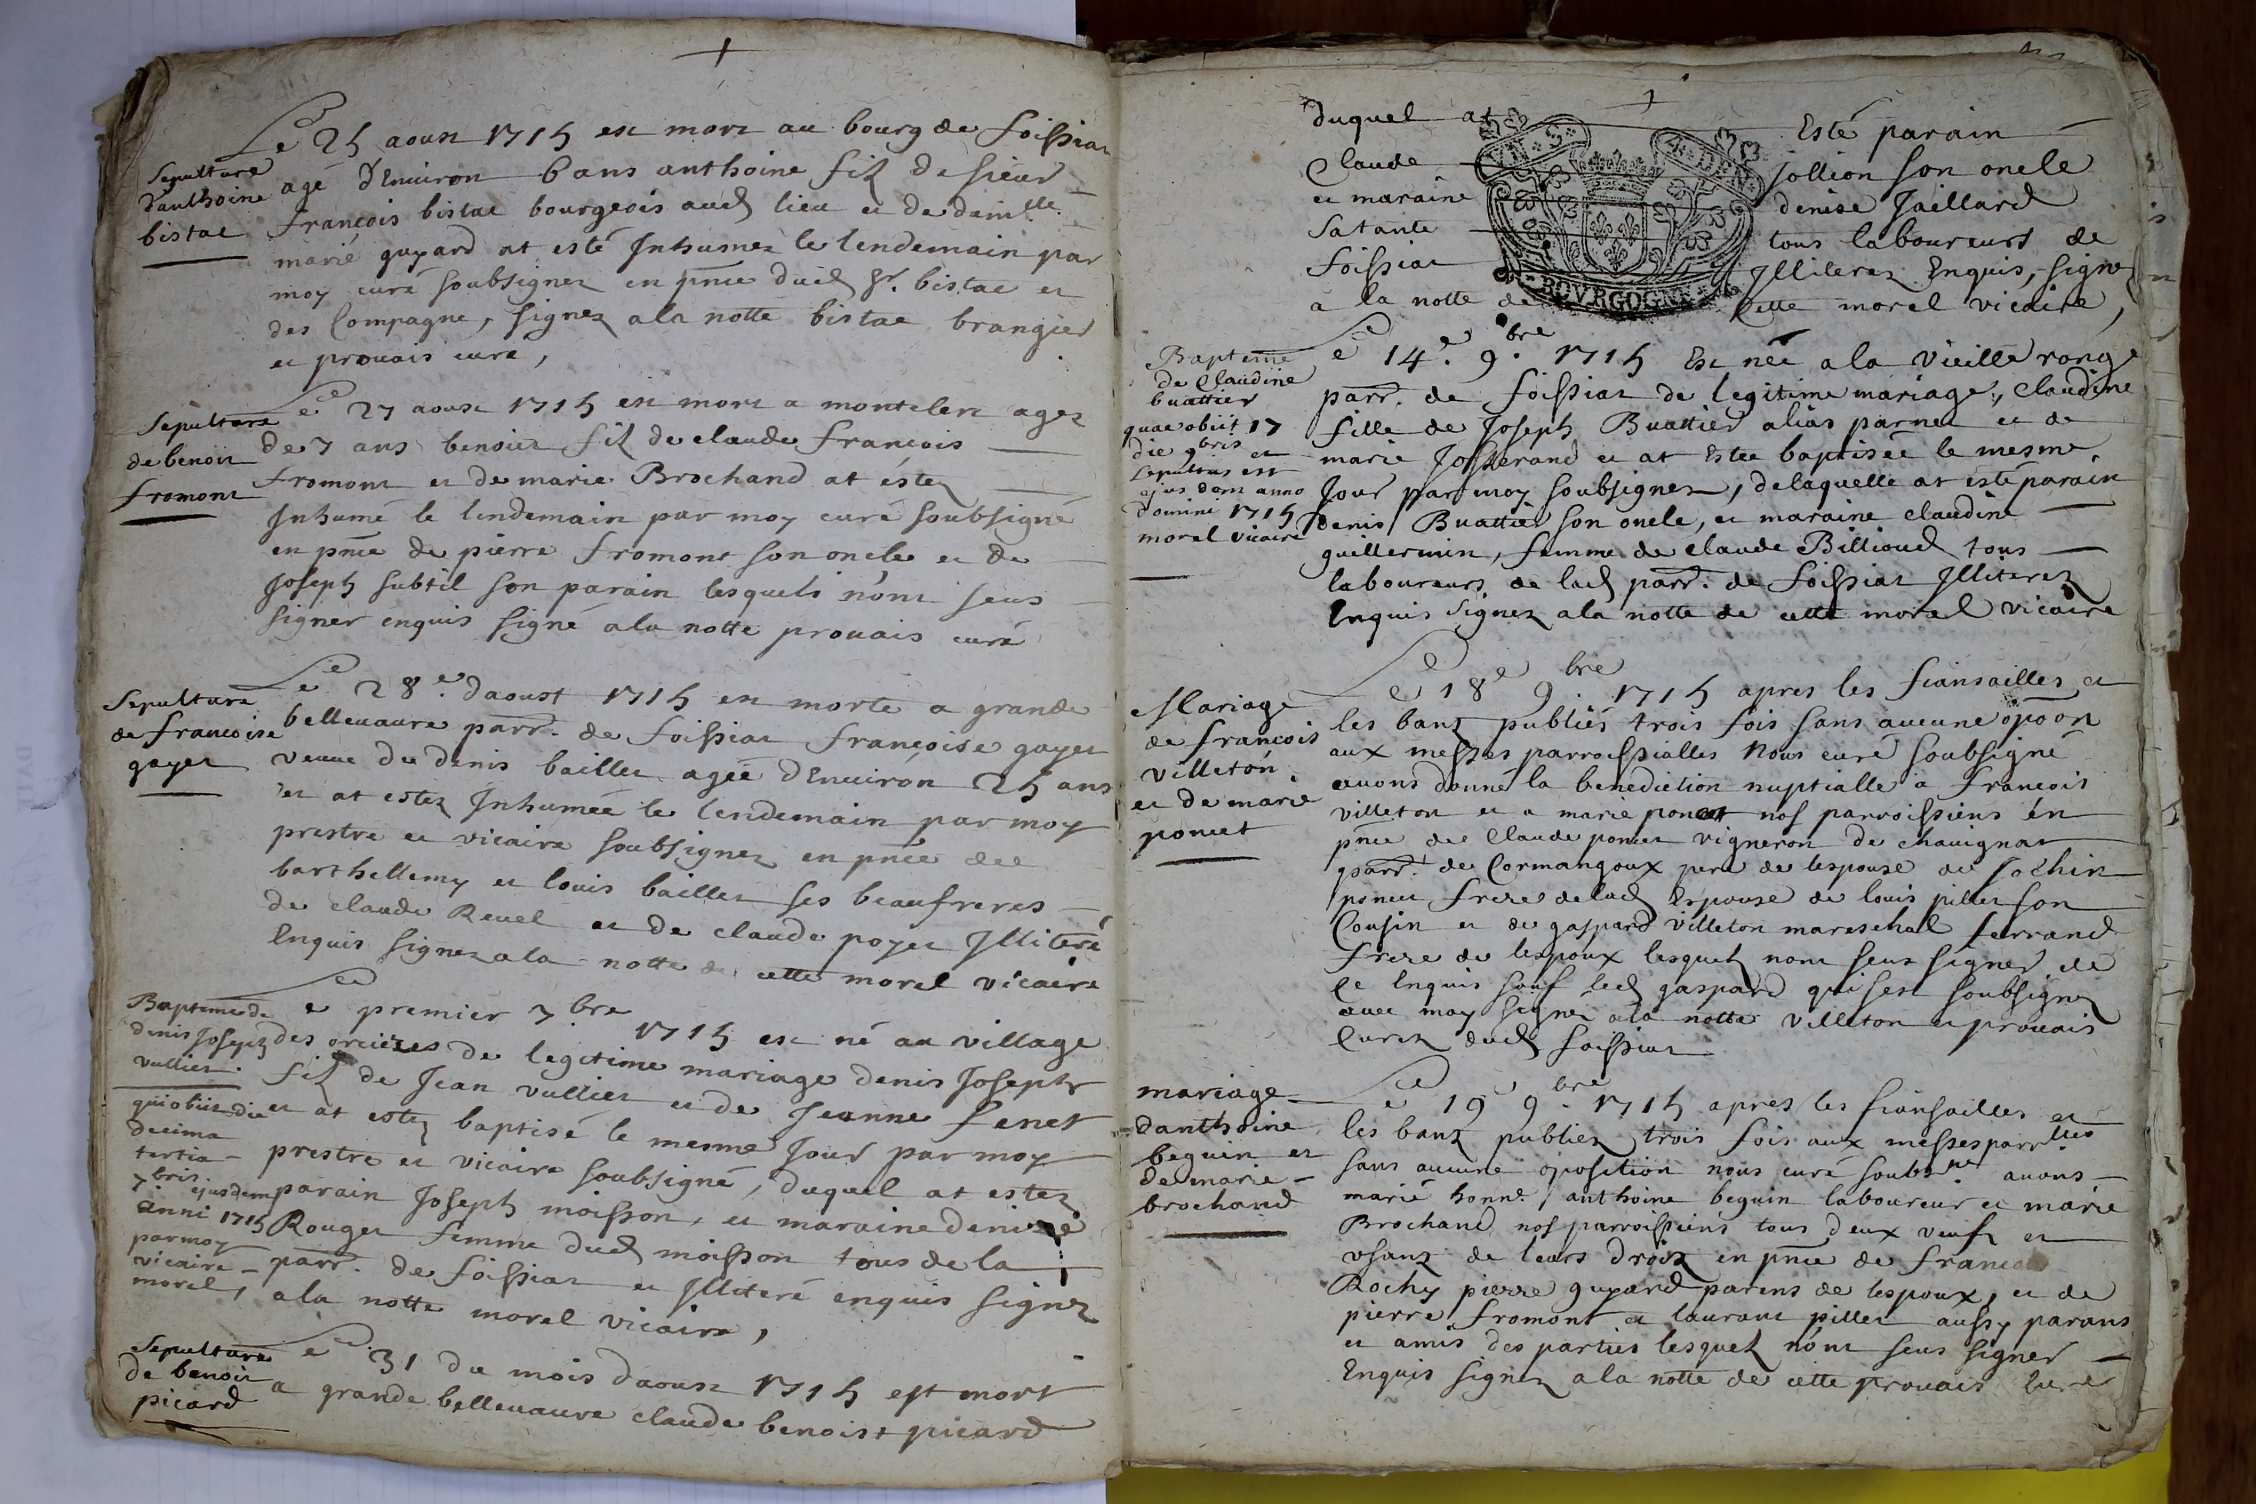 Le 25 aoust 1715 est mort au bourg de foissiat
agé d'Environ 6 ans anthoine filz de sieur
françois bistac bourgeois aud lieu et de damlle
marie guyard at esté Inhumez le lendemain par
moy curé soubsignez en pnce dud sr. bistac et
des Compagne, signez a la notte bistac brangier
et prouais curé,
Sepulture
d'anthoine
bistac
Le 27 aoust 1715 est mort a monteler agez
de 7 ans benoist filz de claude francois
fromont et de marie Brochand at estez
Inhumé le lendemain par moy curé soubsigné
en pnce de pierre fromont son oncle et de
Joseph subtil son parain lesquels n'ont sceus
signer enquis signé a la notte prouais curé
Sepulture
de benoit
fromont
Le 28e. daoust 1715 est morte a grande
bellevaure parr. de foissiat françoise gayet
veuve de denis baillet agée d'Environ 25 ans
et at estez Inhumée le lendemain par moy
prestre et vicaire soubsignez en pnce de
barthellemy et louis baillet ses beaufreres
de claude Revel et de claude poyet Illiteré
Enquis signez a la notte de cette morel vicaire
Sepulture
de francoise
gayet
Le premier 7bre 1715 est né au village
des orcières de legitime mariage denis Joseph
filz de Jean vullier et de Jeanne fenet
et at estez baptisé le mesme Jour par moy
prestre et vicaire soubsigné, duquel at estez
parain Joseph moisson, et maraine denise
Rouget femme dud moisson tous de la
parr. de foissiat et Illiteré enquis signez
a la notte morel vicaire,
Bapteme de
denis Joseph
vullier.
qui obiit die
decima
tertia
7bris ejusdem
anni 1715
par moy
vicaire
morel,
Le 31 du mois daoust 1715 est mort
a grande bellevaure claude benoist picard
Sepulture
de benoit
picard
duquel at Esté parain
Claude jollion son oncle
et maraine denise Jaillard
sa tante tous laboureurs de
foissiat Illiterez Enquis, signez
a la notte de Cette morel vicaire,
BOVRGOGNE
Le 14e. 9bre 1715 Est née a la vieille range
parr. de foissiat de legitime mariage, Claudine
fille de Joseph Buattier alias parnet et de
marie Josserand et at Estée baptisée le mesme
Jour par moy soubsignez, delaquelle at esté parain
denis Buattier son oncle, et maraine claudine
guillermin, femme de claude Billioud tous
laboureurs de lad parr. de foissiat Illiterez
Enquis signez a la notte de cette morel vicaire
Bapteme
de Claudine
buattier
quae obiit 17
die 9bris et
sepultus est
ejus dem anno
domini 1715
morel vicaire
Le 18e 9bre 1715 apres les fiansailles et
les banz publiés trois fois sans aucune opoon
aux messes parroissialles Nous curé soubsigné
avons donné la benediction nuptialle a francois
villeton et a marie poncet nos parroissiens én
pnce de Claude poncet vigneron de chavignat
parr. de Cormangoux pere de lespouse de Jochin
poncet frere delad Espouse de louis pillet son
Cousin et de gaspard villeton mareschal ferrand
frere de lespoux lesquelz nont sceus signer de
Ce Enquis sauf led gaspard qui sest soubsignez
avec moy signé a la notte villeton et prouais
Curez dud foissiat
Mariage
de francois
villeton
et de marie
poncet
Le 19 9bre. 1715 apres les fiansailles et
les banz publiez trois fois aux messes parrlles
sans aucune oposition nous curé soubsné avons
marié honne. anthoine béguin laboureur et marie
Brochand nos parroissiens tous deux veufz et
usanz de leurs droitz en pnce de francois
Rochy pierre guyard parens de lespoux, et de
pierre fromont et laurant pillet aussy parans
et amis des parties lesquelz n'ont sceus signer
Enquis signez a la notte de cette prouais Curé
mariage
danthoine
beguin et
de marie
brochand